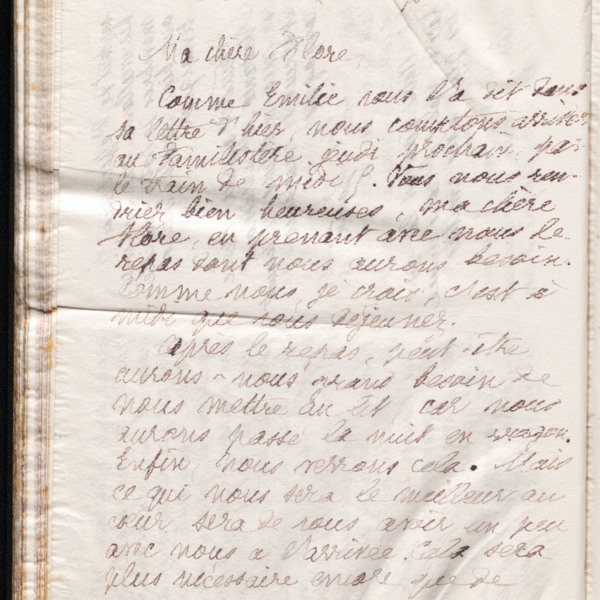 Ma chère Flore,
Comme Emilie vous l'a dit dans
sa lettre d'hier nous comptons arriver
au Familistère jeudi prochain par
le train de midi 9. Vous nous ren-
driez bien heureuses, ma chère
Flore, en prenant avec nous le
repas dont nous aurons besoin.
Comme nous je crois, c'est à
midi que vous déjeunez.
Après le repas, peut-être
aurons-nous grand besoin de
nous mettre au lit, car nous
aurons passé la nuit en wagon.
Enfin, nous verrons cela. Mais
ce qui nous sera le meilleur au
cœur sera de vous avoir un peu
avec nous à l'arrivée. Cela sera
plus nécessaire encore que de